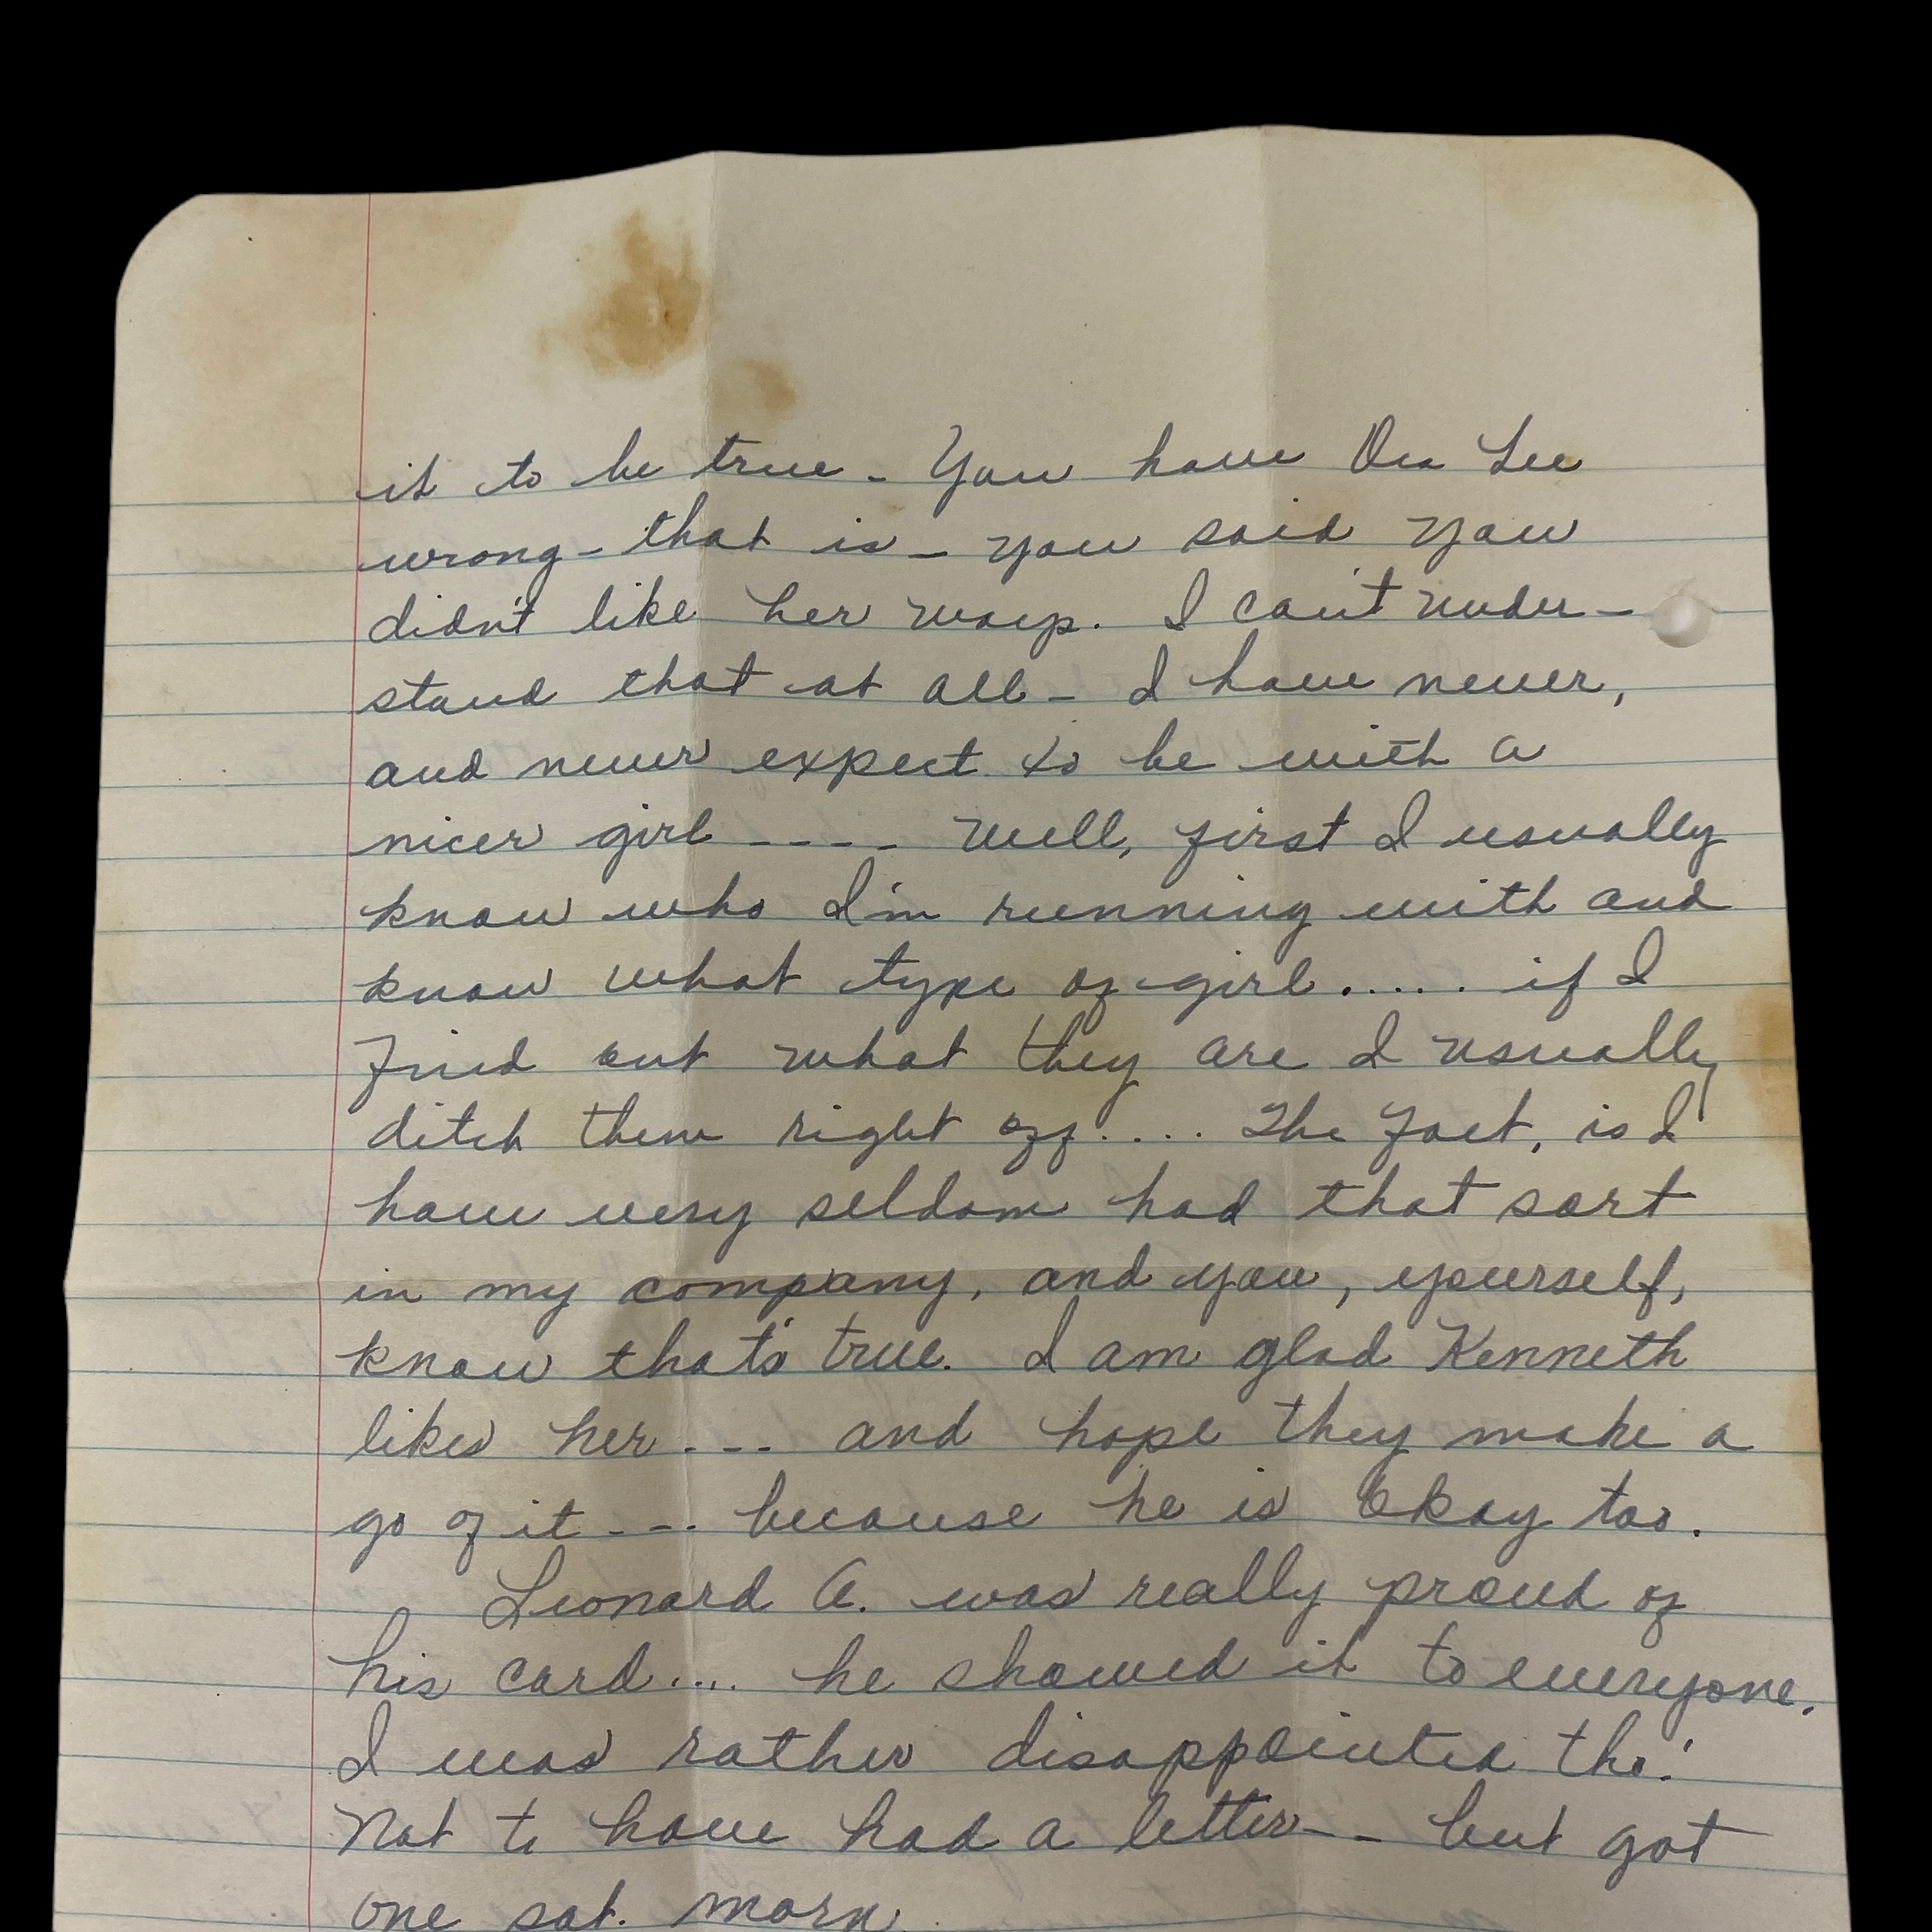 it to be true - You have Ora Lee
wrong - that is - you said you
didn't like her ways. I can't under-
stand that at all - I have never,
and never expect to be with a
nicer girl ---- Well, first I usually
know who I'm running with and
know what type of girl..... if I
find out what they are I usually
ditch them right off.... The fact, is I
have very seldom had that sort
in my company, and you, yourself,
know that's true. I am glad Kenneth
likes her --- and hope they make a
go of it --- because he is Okay too.
Leonard A. was really proud of
his card.... he showed it to everyone.
I was rather disappointed tho!
Not to have had a letter -- but got
one sat. morn.